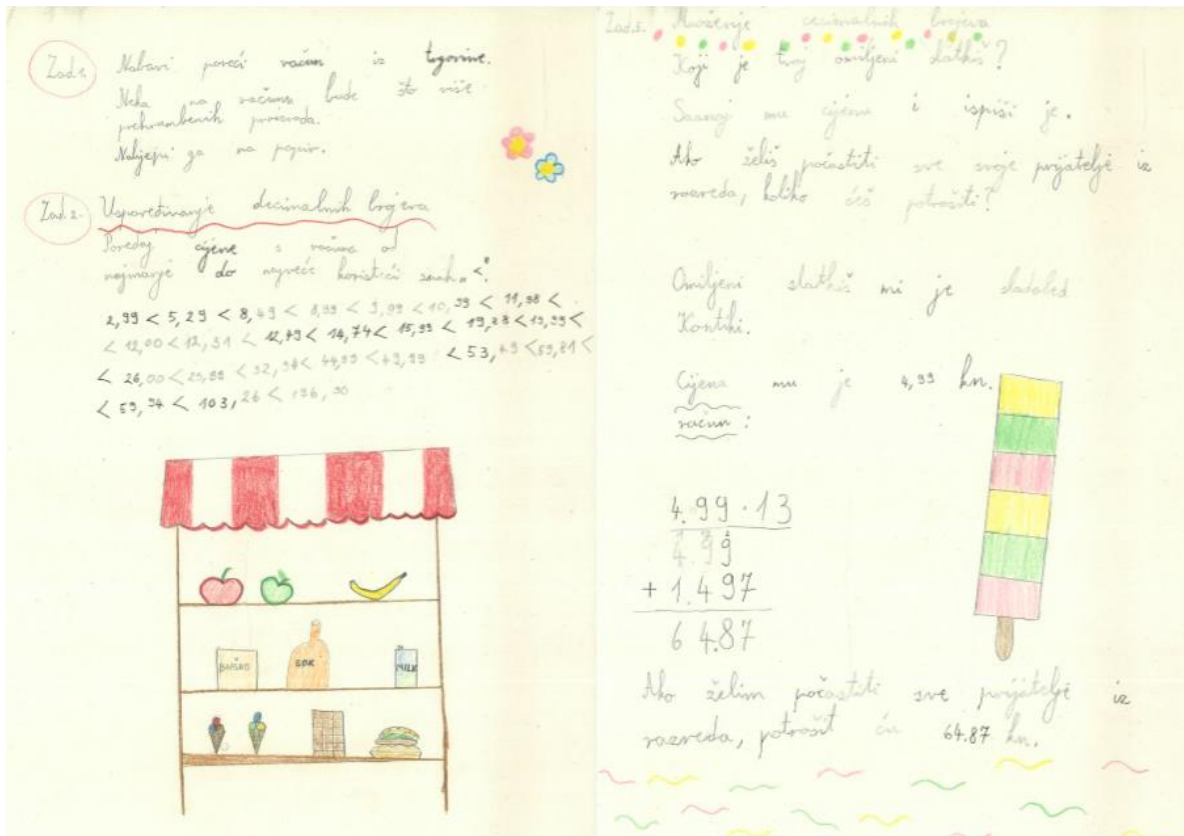 Zad 1. Nabavi poveći račun iz trgovine.
Neka na računu bude što više
prehrambenih proizvoda.
Nalijepi ga na papir.
Zad 2. Uspoređivanje decimalnih brojeva
Poredaj cijene s računa od
najmanje do najveće koristeći znak „<".
2,99 < 5,29 < 8,49 < 8,99 < 9,99 < 10,99 < 11,98 <
< 12,00 < 12,31 < 12,49 < 14,74 < 15,99 < 19,28 < 19,99 <
< 26,00 < 29,88 < 32,94 < 44,99 < 49,99 < 53,49 < 59,81 <
< 59,94 < 103,26 < 196,90
BAJSKO
SOK
MILK
Zad 5. Množenje decimalnih brojeva
Koji je tvoj omiljeni slatkiš?
Saznaj mu cijenu i ispiši je.
Ako želiš počastiti sve svoje prijatelje iz
razreda, koliko ćeš potrošiti?
Omiljeni slatkiš mi je sladoled
Kontiki.
Cijena mu je 4,99 kn.
račun:
4.99 · 13
4 9 9
+ 1.497
64.87
Ako želim počastiti sve prijatelje iz
razreda, potrošit ću 64.87 kn.